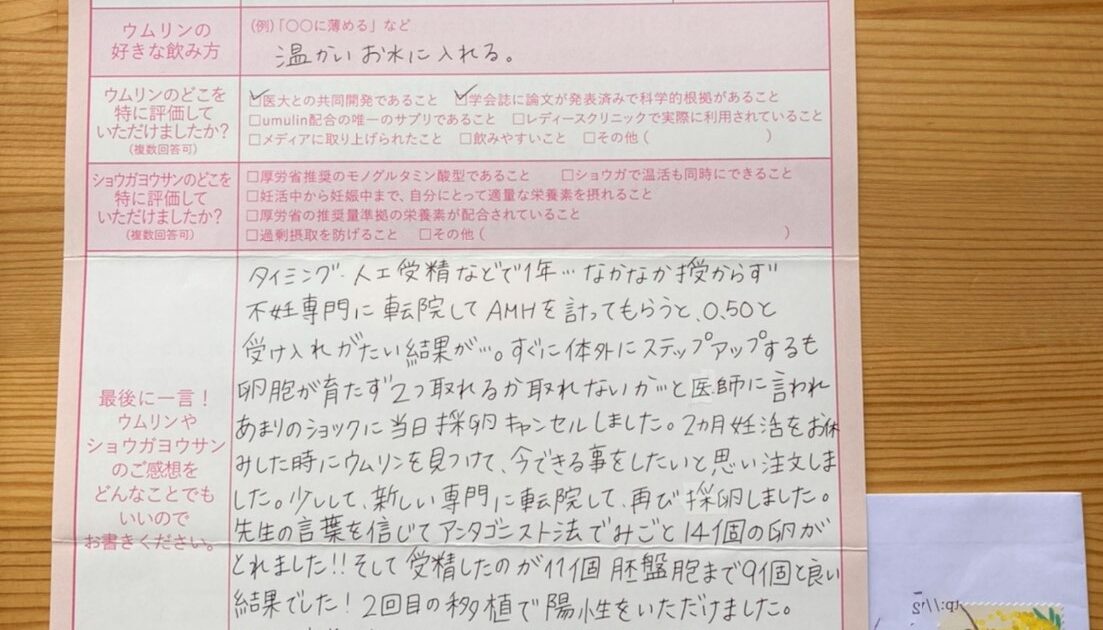 ウムリンの
好きな飲み方
(例)「〇〇に薄める」など
温かいお水に入れる。
ウムリンのどこを
特に評価して
いただけましたか?
(複数回答可)
☑医大との共同開発であること ☑学会誌に論文が発表済みで科学的根拠があること
□umulin配合の唯一のサプリであること □レディースクリニックで実際に利用されていること
□メディアに取り上げられたこと □飲みやすいこと □その他( )
ショウガヨウサンのどこを
特に評価して
いただけましたか?
(複数回答可)
□厚労省推奨のモノグルタミン酸型であること □ショウガで温活も同時にできること
□妊活中から妊娠中まで、自分にとって適量な栄養素を摂れること
□厚労省の推奨量準拠の栄養素が配合されていること
□過剰摂取を防げること □その他( )
最後に一言!
ウムリンや
ショウガヨウサン
のご感想を
どんなことでも
いいので
お書きください。
タイミング・人工受精などで1年…なかなか授からず
不妊専門に転院してAMHを計ってもらうと、0.50と
受け入れがたい結果が…。すぐに体外にステップアップするも
卵胞が育たず2つ取れるか取れないか…と医師に言われ
あまりのショックに当日採卵キャンセルしました。2カ月妊活をお休
みした時にウムリンを見つけて、今できる事をしたいと思い注文しま
した。少しして、新しい専門に転院して、再び採卵しました。
先生の言葉を信じてアンタゴニスト法でみごと14個の卵が
とれました!!そして受精したのが11個 胚盤胞まで9個と良い
結果でした!2回目の移植で陽性をいただけました。